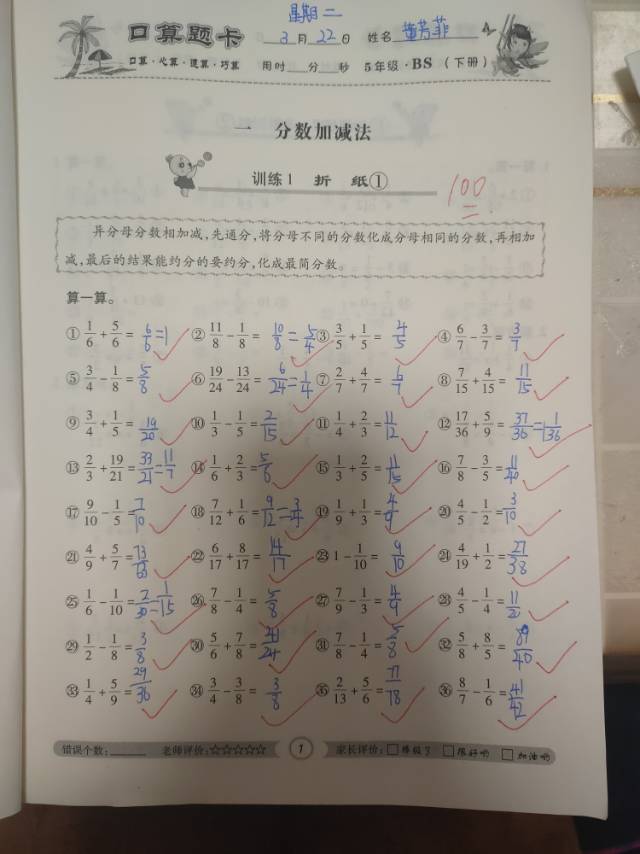 星期二
口算题卡 3月22日 姓名 董芳菲
口算·心算·速算·巧算 用时___分___秒 5年级·BS（下册）
一 分数加减法
训练1 折 纸①
100
异分母分数相加减,先通分,将分母不同的分数化成分母相同的分数,再相加
减,最后的结果能约分的要约分,化成最简分数。
算一算。
① 1/6 + 5/6 = 6/6 = 1 ② 11/8 − 1/8 = 10/8 = 5/4 ③ 3/5 + 1/5 = 4/5 ④ 6/7 − 3/7 = 3/7
⑤ 3/4 − 1/8 = 5/8 ⑥ 19/24 − 13/24 = 6/24 = 1/4 ⑦ 2/7 + 4/7 = 6/7 ⑧ 7/15 + 4/15 = 11/15
⑨ 3/4 + 1/5 = 19/20 ⑩ 1/3 − 1/5 = 2/15 ⑪ 1/4 + 2/3 = 11/12 ⑫ 17/36 + 5/9 = 37/36 = 1 1/36
⑬ 2/3 + 19/21 = 33/21 = 11/7 ⑭ 1/6 + 2/3 = 5/6 ⑮ 1/3 + 2/5 = 11/15 ⑯ 7/8 − 3/5 = 11/40
⑰ 9/10 − 1/5 = 7/10 ⑱ 7/12 + 1/6 = 9/12 = 3/4 ⑲ 1/9 + 1/3 = 4/9 ⑳ 4/5 − 1/2 = 3/10
㉑ 4/9 + 5/7 = 73/63 ㉒ 6/17 + 8/17 = 14/17 ㉓ 1 − 1/10 = 9/10 ㉔ 4/19 + 1/2 = 27/38
㉕ 1/6 − 1/10 = 2/30 = 1/15 ㉖ 7/8 − 1/4 = 5/8 ㉗ 7/9 − 1/3 = 4/9 ㉘ 4/5 − 1/4 = 11/20
㉙ 1/2 − 1/8 = 3/8 ㉚ 5/6 + 7/8 = 41/24 ㉛ 7/8 − 1/4 = 5/8 ㉜ 5/8 + 8/5 = 89/40
㉝ 1/4 + 5/9 = 29/36 ㉞ 3/4 − 3/8 = 3/8 ㉟ 2/13 + 5/6 = 77/18 ㊱ 8/7 − 1/6 = 41/42
错误个数:______ 老师评价:☆☆☆☆☆ 1 家长评价:□棒极了 □很好哟 □加油哟